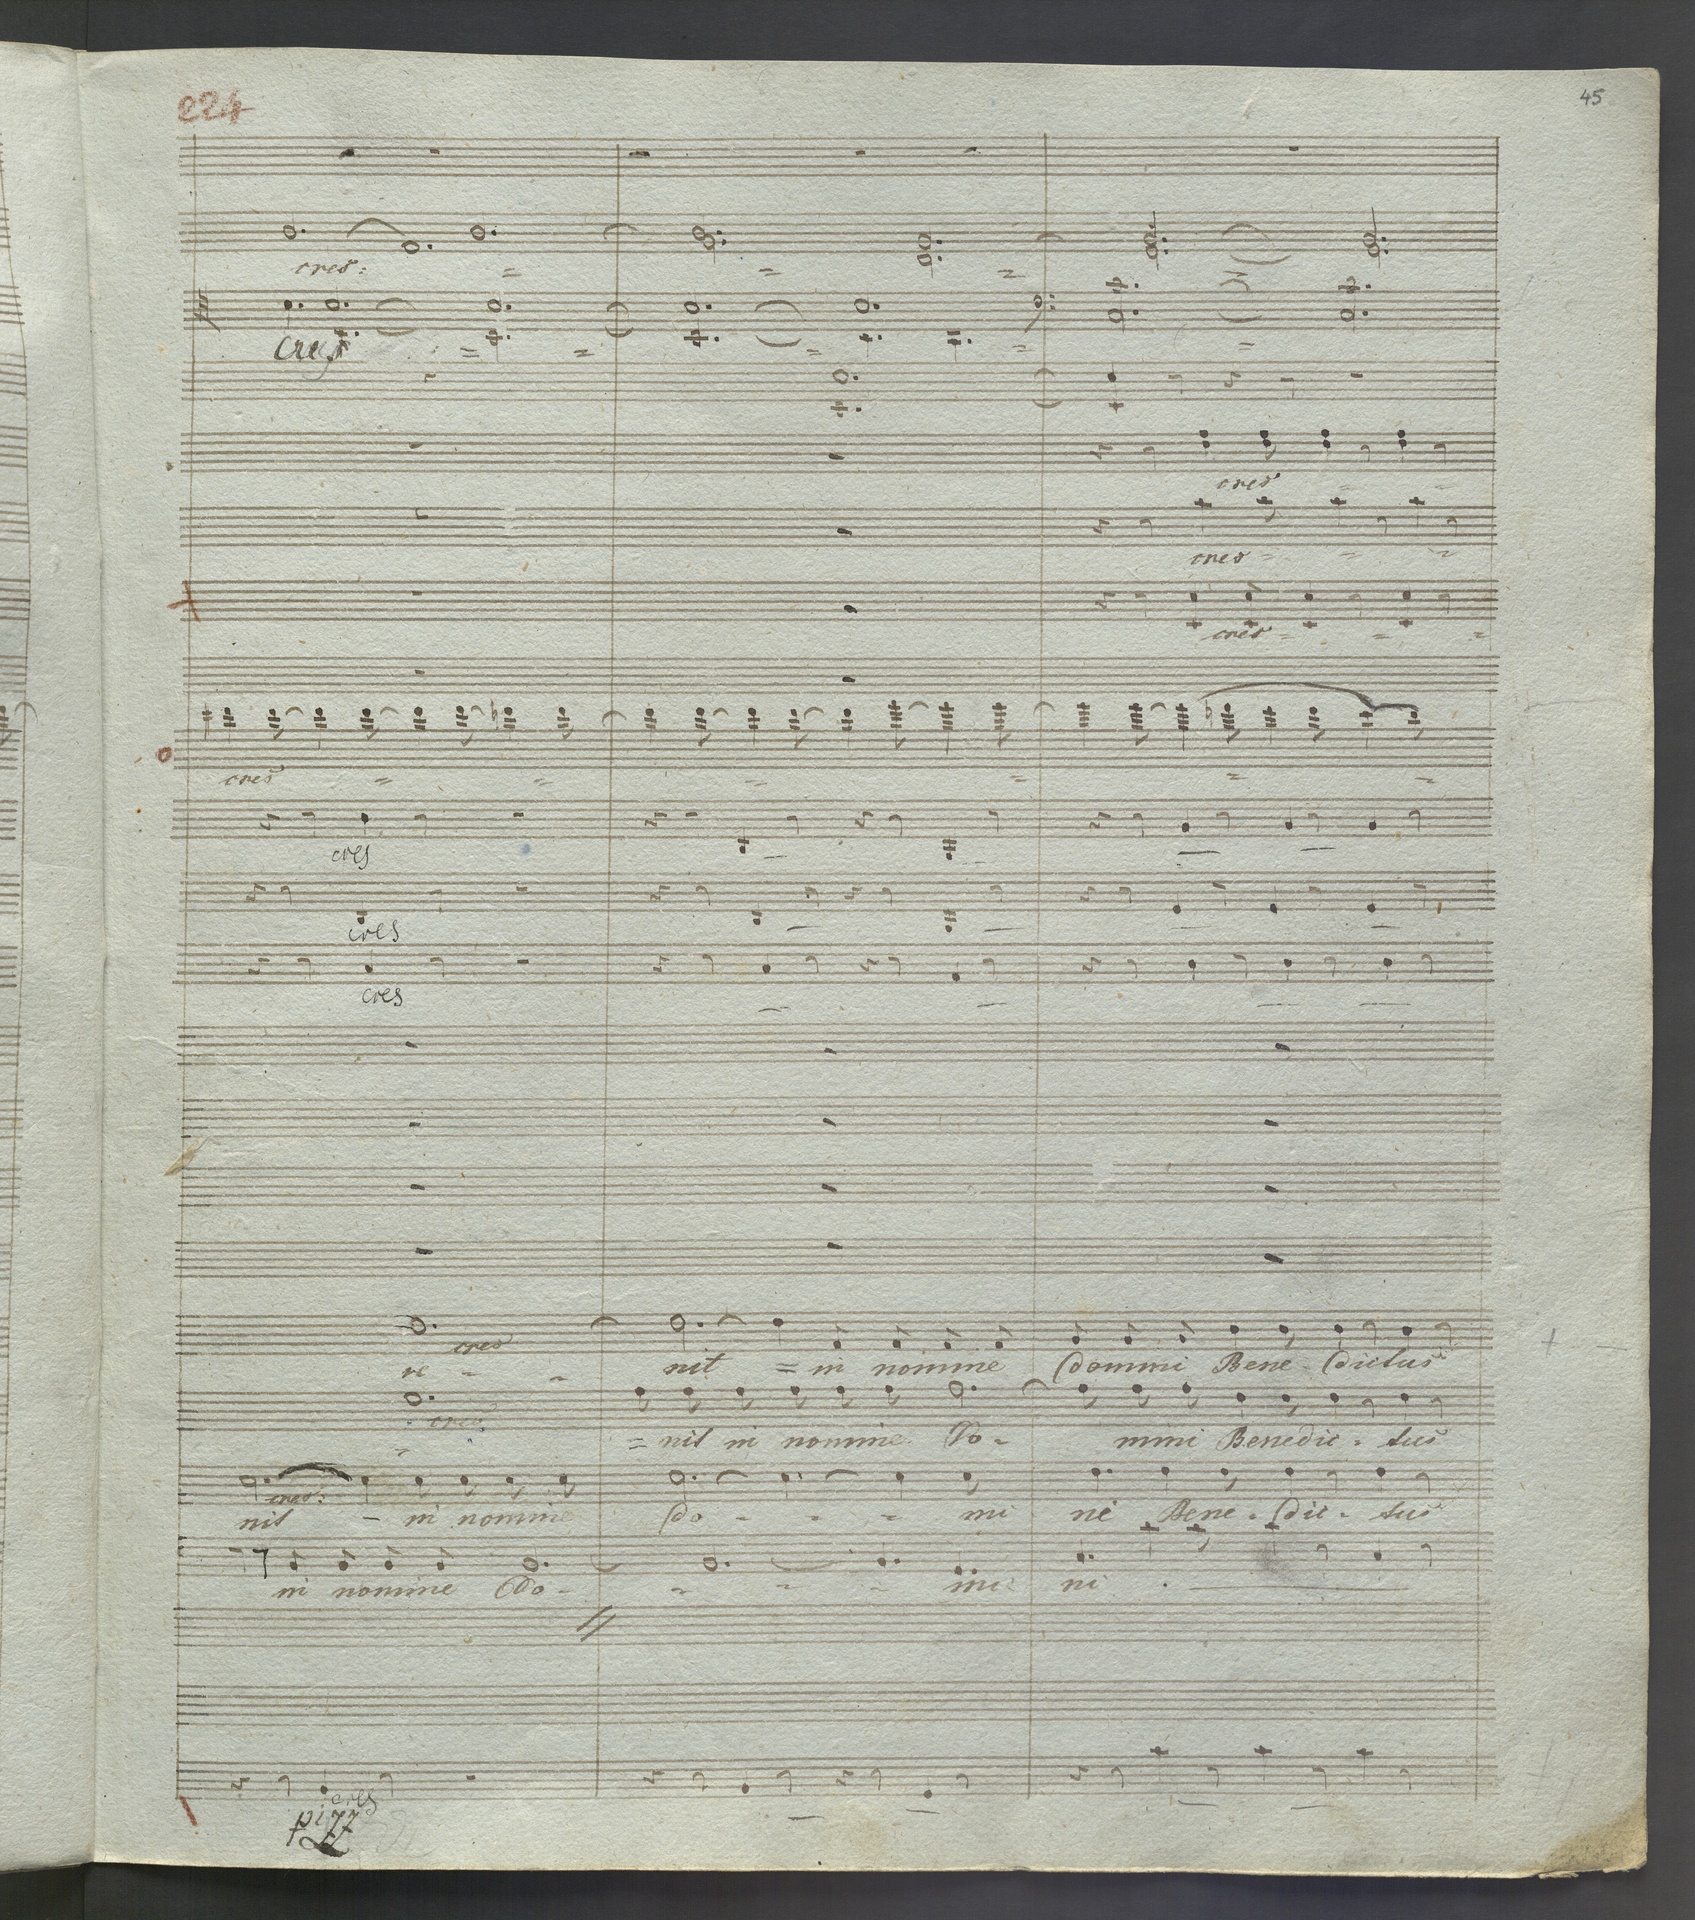 224
45
cres:
cres
cres
cres
cres
cres
cres
cres
cres
cres
ve - -
nit = in nomine Domini Bene - dictus
cres
= nit in nomine Do - mini Benedic - tus
cres:
nit - in nomine Do - - - mi ne Bene - dic - tus
in nomine Do - - - - mi ni
cres
pizz